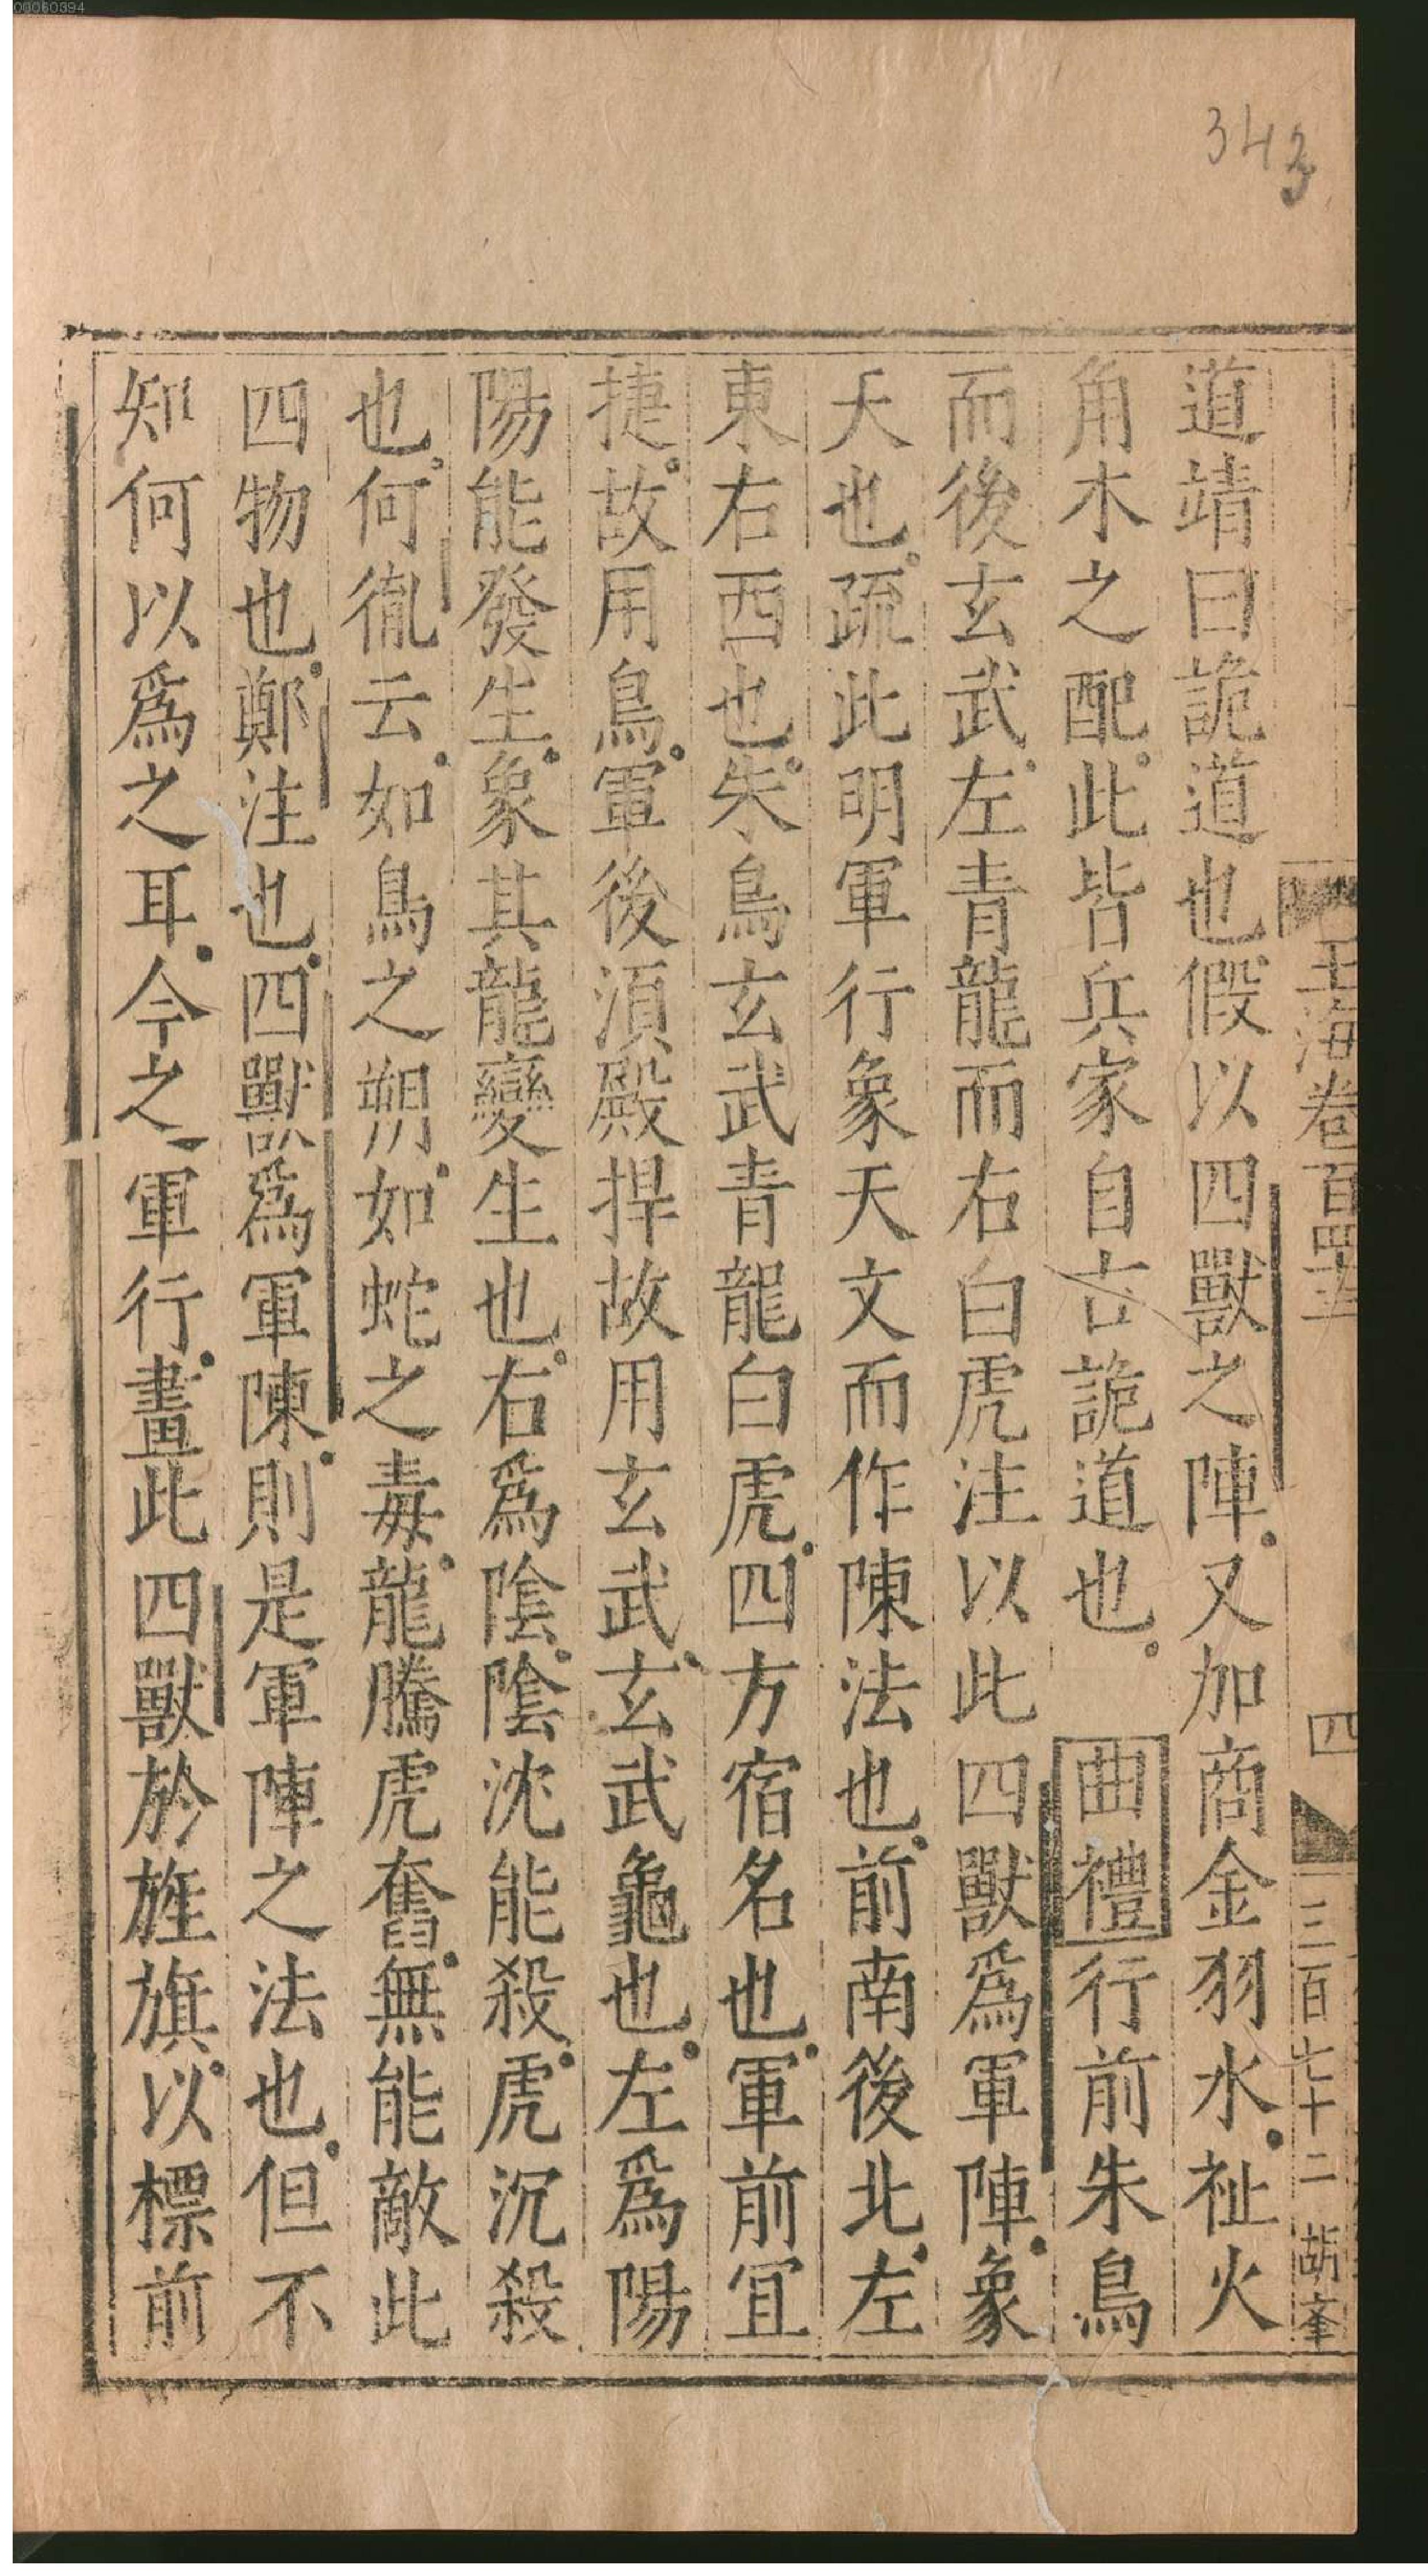 00060394
343
玉海卷百四十五
四
三百七十二
胡奎
道靖曰詭道也假以四獸之陣又加商金羽水祉火
角木之配此皆兵家自古詭道也 曲禮行前朱鳥
而後玄武左青龍而右白虎注以此四獸爲軍陣象
天也疏此明軍行象天文而作陳法也前南後北左
東右西也朱鳥玄武青龍白虎四方宿名也軍前宜
捷故用鳥軍後湏殿捍故用玄武玄武龜也左爲陽
陽能發生象其龍變生也右爲陰陰沈能殺虎沉殺
也何胤云如鳥之翔如蛇之毒龍騰虎奮無能敵此
四物也鄭注也四獸爲軍陳則是軍陣之法也但不
知何以爲之耳今之軍行畫此四獸於旌旗以標前